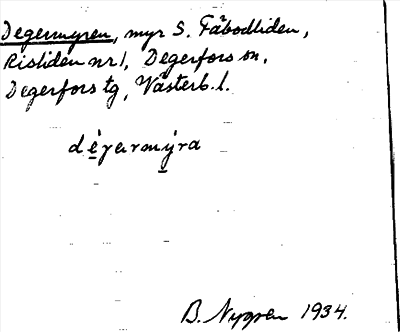 Degermyren, myr S. Fäbodliden,
Risliden nr 1, Degerfors sn,
Degerfors tg, Västerb. l.
dégermýra
B. Nygren 1934.